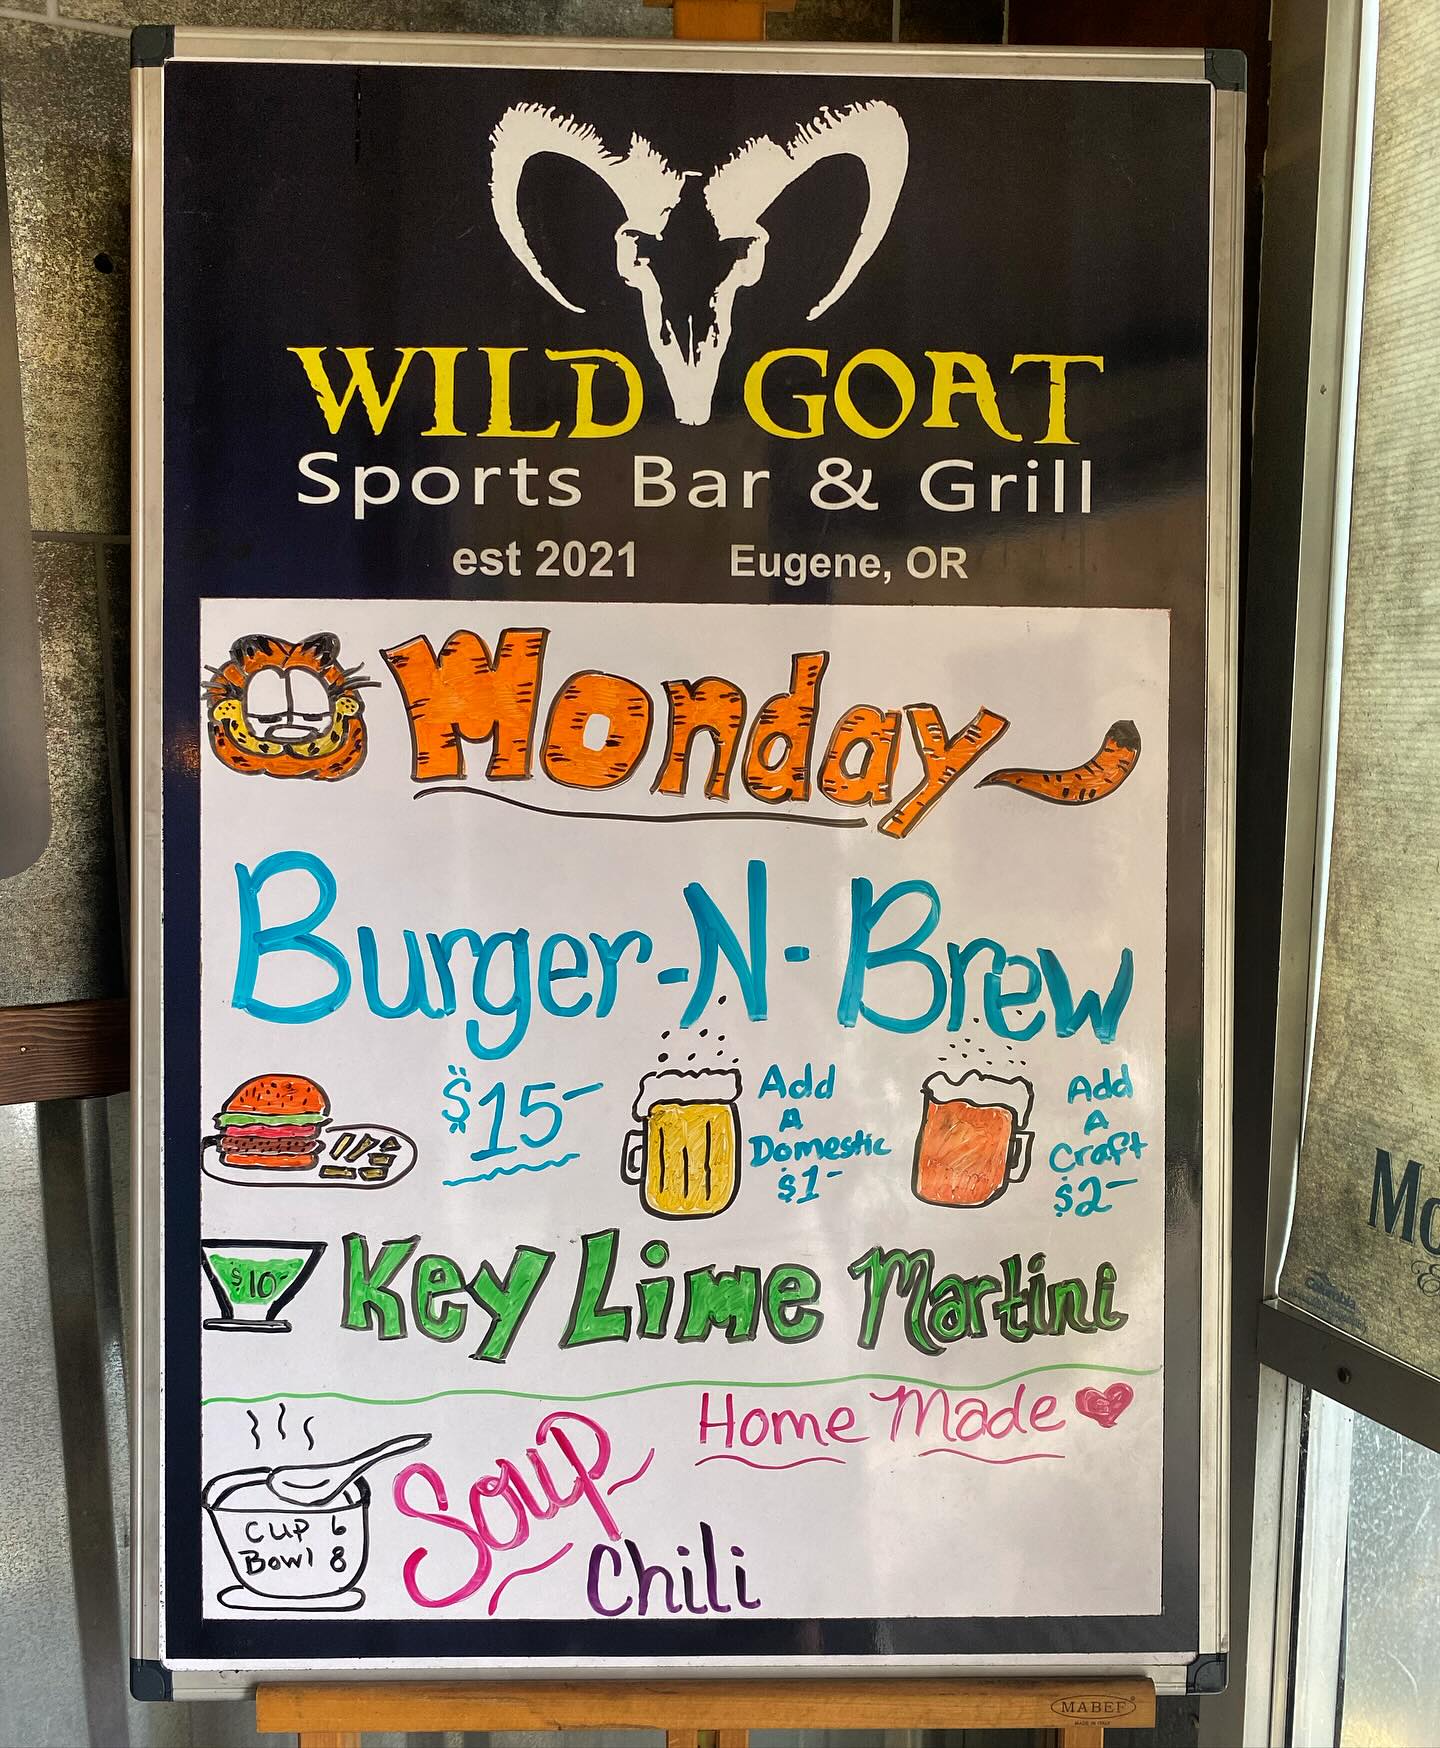 WILD GOAT
Sports Bar & Grill
est 2021 Eugene, OR
Monday
Burger-N-Brew
$15-
Add
A
Domestic
$1-
Add
A
Craft
$2-
$10-
Key Lime Martini
Home Made
Soup
Cup 6
Bowl 8
Chili
MABEF
MADE IN ITALY